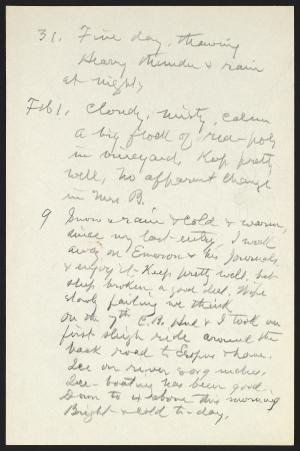 31. Fine day, thawing
Heavy thunder & rain
at night,
Feb 1, Cloudy, misty, calm
a big flock of red-pols
in vineyard, Keep pretty
well, No apparent change
in Mrs B.
9 Snow & rain & cold & warm,
since my last entry, I work
away on Emerson & his Journals
& enjoy it - Keep pretty well, but
sleep broken a good deal. Wife
slowly failing we think
on the 7th C.B. and I took our
first sleigh ride around the
back road to Esopus & home.
Ice on river 8 or 9 inches.
Ice-boating has been good.
Down to 4 above this morning
Bright & cold to-day.